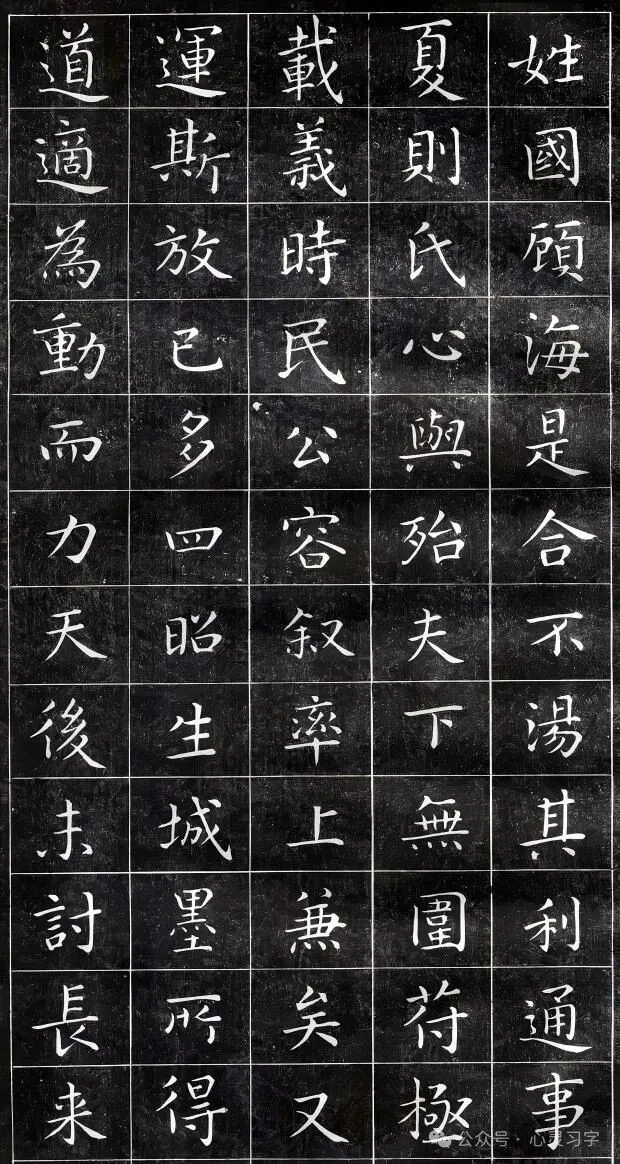 姓國顧海是合不湯其利通事
夏則氏心與殆夫下無圍苻極
載義時民公容叙率上兼矣又
運斯放已多四昭生城墨所得
道適為動而力天後未討長来
公众号·心灵习字